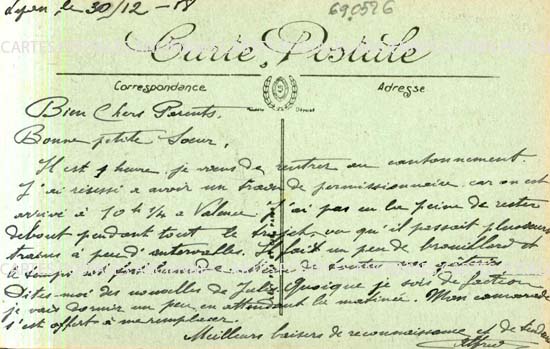 le 30/12 - 18
690526
Carte Postale
Correspondance
Adresse
Bien Chers Parents,
Bonne petite Soeur,
Il est 1 heure, je viens de rentrer au cantonnement.
J'ai réussi a avoir un train de permissionnaire, car on est
arrivé à 10h 1/2 a Valence j'ai pas eu la peine de rester
debout pendant tout le trajet, vu qu'il passait plusieurs
trains à peu d'intervalles. Il fait un peu de brouillard et
le temps est
Dites-moi des nouvelles de Julia Quoique je sois de faction
je vais dormir un peu en attendant la matinée. Mon camarade
s'est offert à me remplacer.
Meilleurs baisers de reconnaissance et de
Alfred